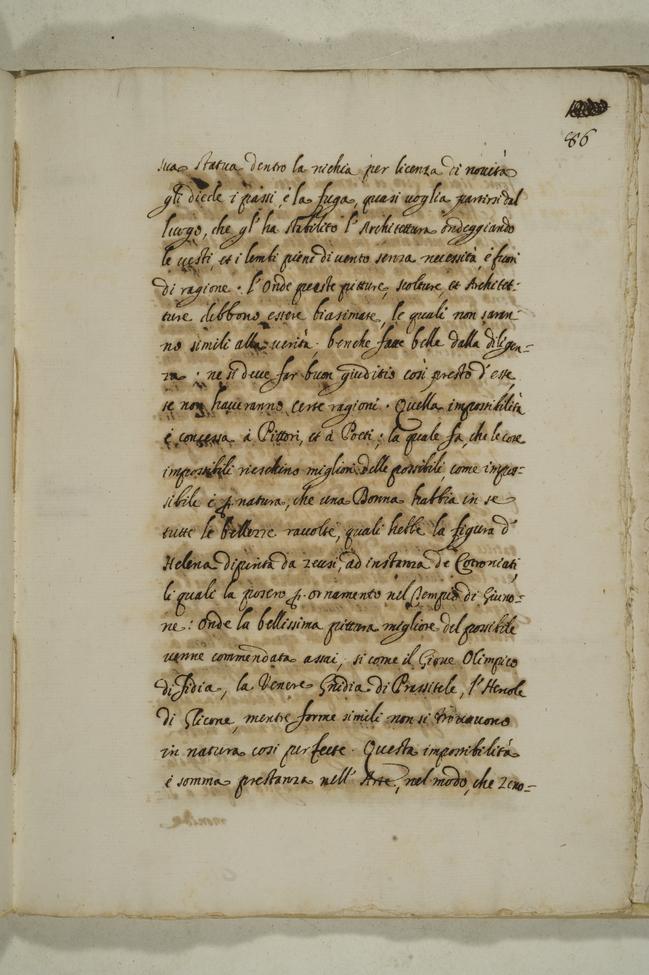 86
sua statua dentro la nichia per licenza di novità
gli diede i passi, e la fuga, quasi voglia partirsi dal
luogo, che gl'ha stabilito l'Architettura ondeggiando
le vesti, et i lembi pieni di vento senza necessità, e fuori
di ragione. l'Onde queste pitture, scolture et Architet-
ture debbono essere biasimate, le quali non saran-
no simili alla verità; benche fatte belle dalla diligen-
za; ne si deve far buon giuditio così presto d'esse,
se non haveranno certe ragioni. Quella impossibilità
è concessa à Pittori, et à Poeti; la quale fa, che le cose
impossibili rieschino migliori delle possibili, come impos-
sibile è p. natura, che una Donna habbia in se
tutte le bellezze raccolte, quali hebbe la figura d'
Helena dipinta da Zeusi, ad instanza de Cotroniati,
li quali la posero p. ornamento nel Tempio di Giuno-
ne: Onde la bellissima pittura migliore del possibile
venne commendata assai; si come il Giove Olimpico
di Fidia, la Venere Gnidia di Prassitele, l'Hercole
di Glicone, mentre forme simili non si trovavono
in natura così perfette. Questa impossibilità
è somma prestanza nell'Arte, nel modo, che Zeno-